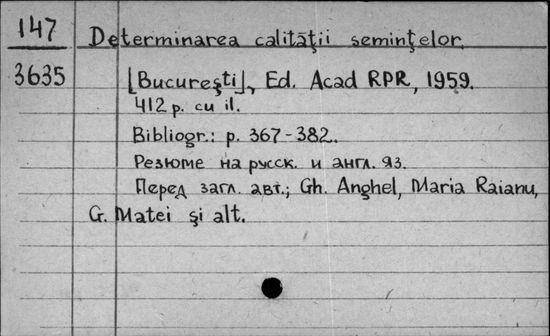 147
3635
Determinarea calităţii seminţelor.
[Bucureşti], Ed. Acad RPR, 1959.
412 p. cu il.
Bibliogr.: p. 367-382.
Резюме на русск. и англ. яз.
Перед загл. авт.; Gh. Anghel, Maria Raianu,
G. Matei şi alt.